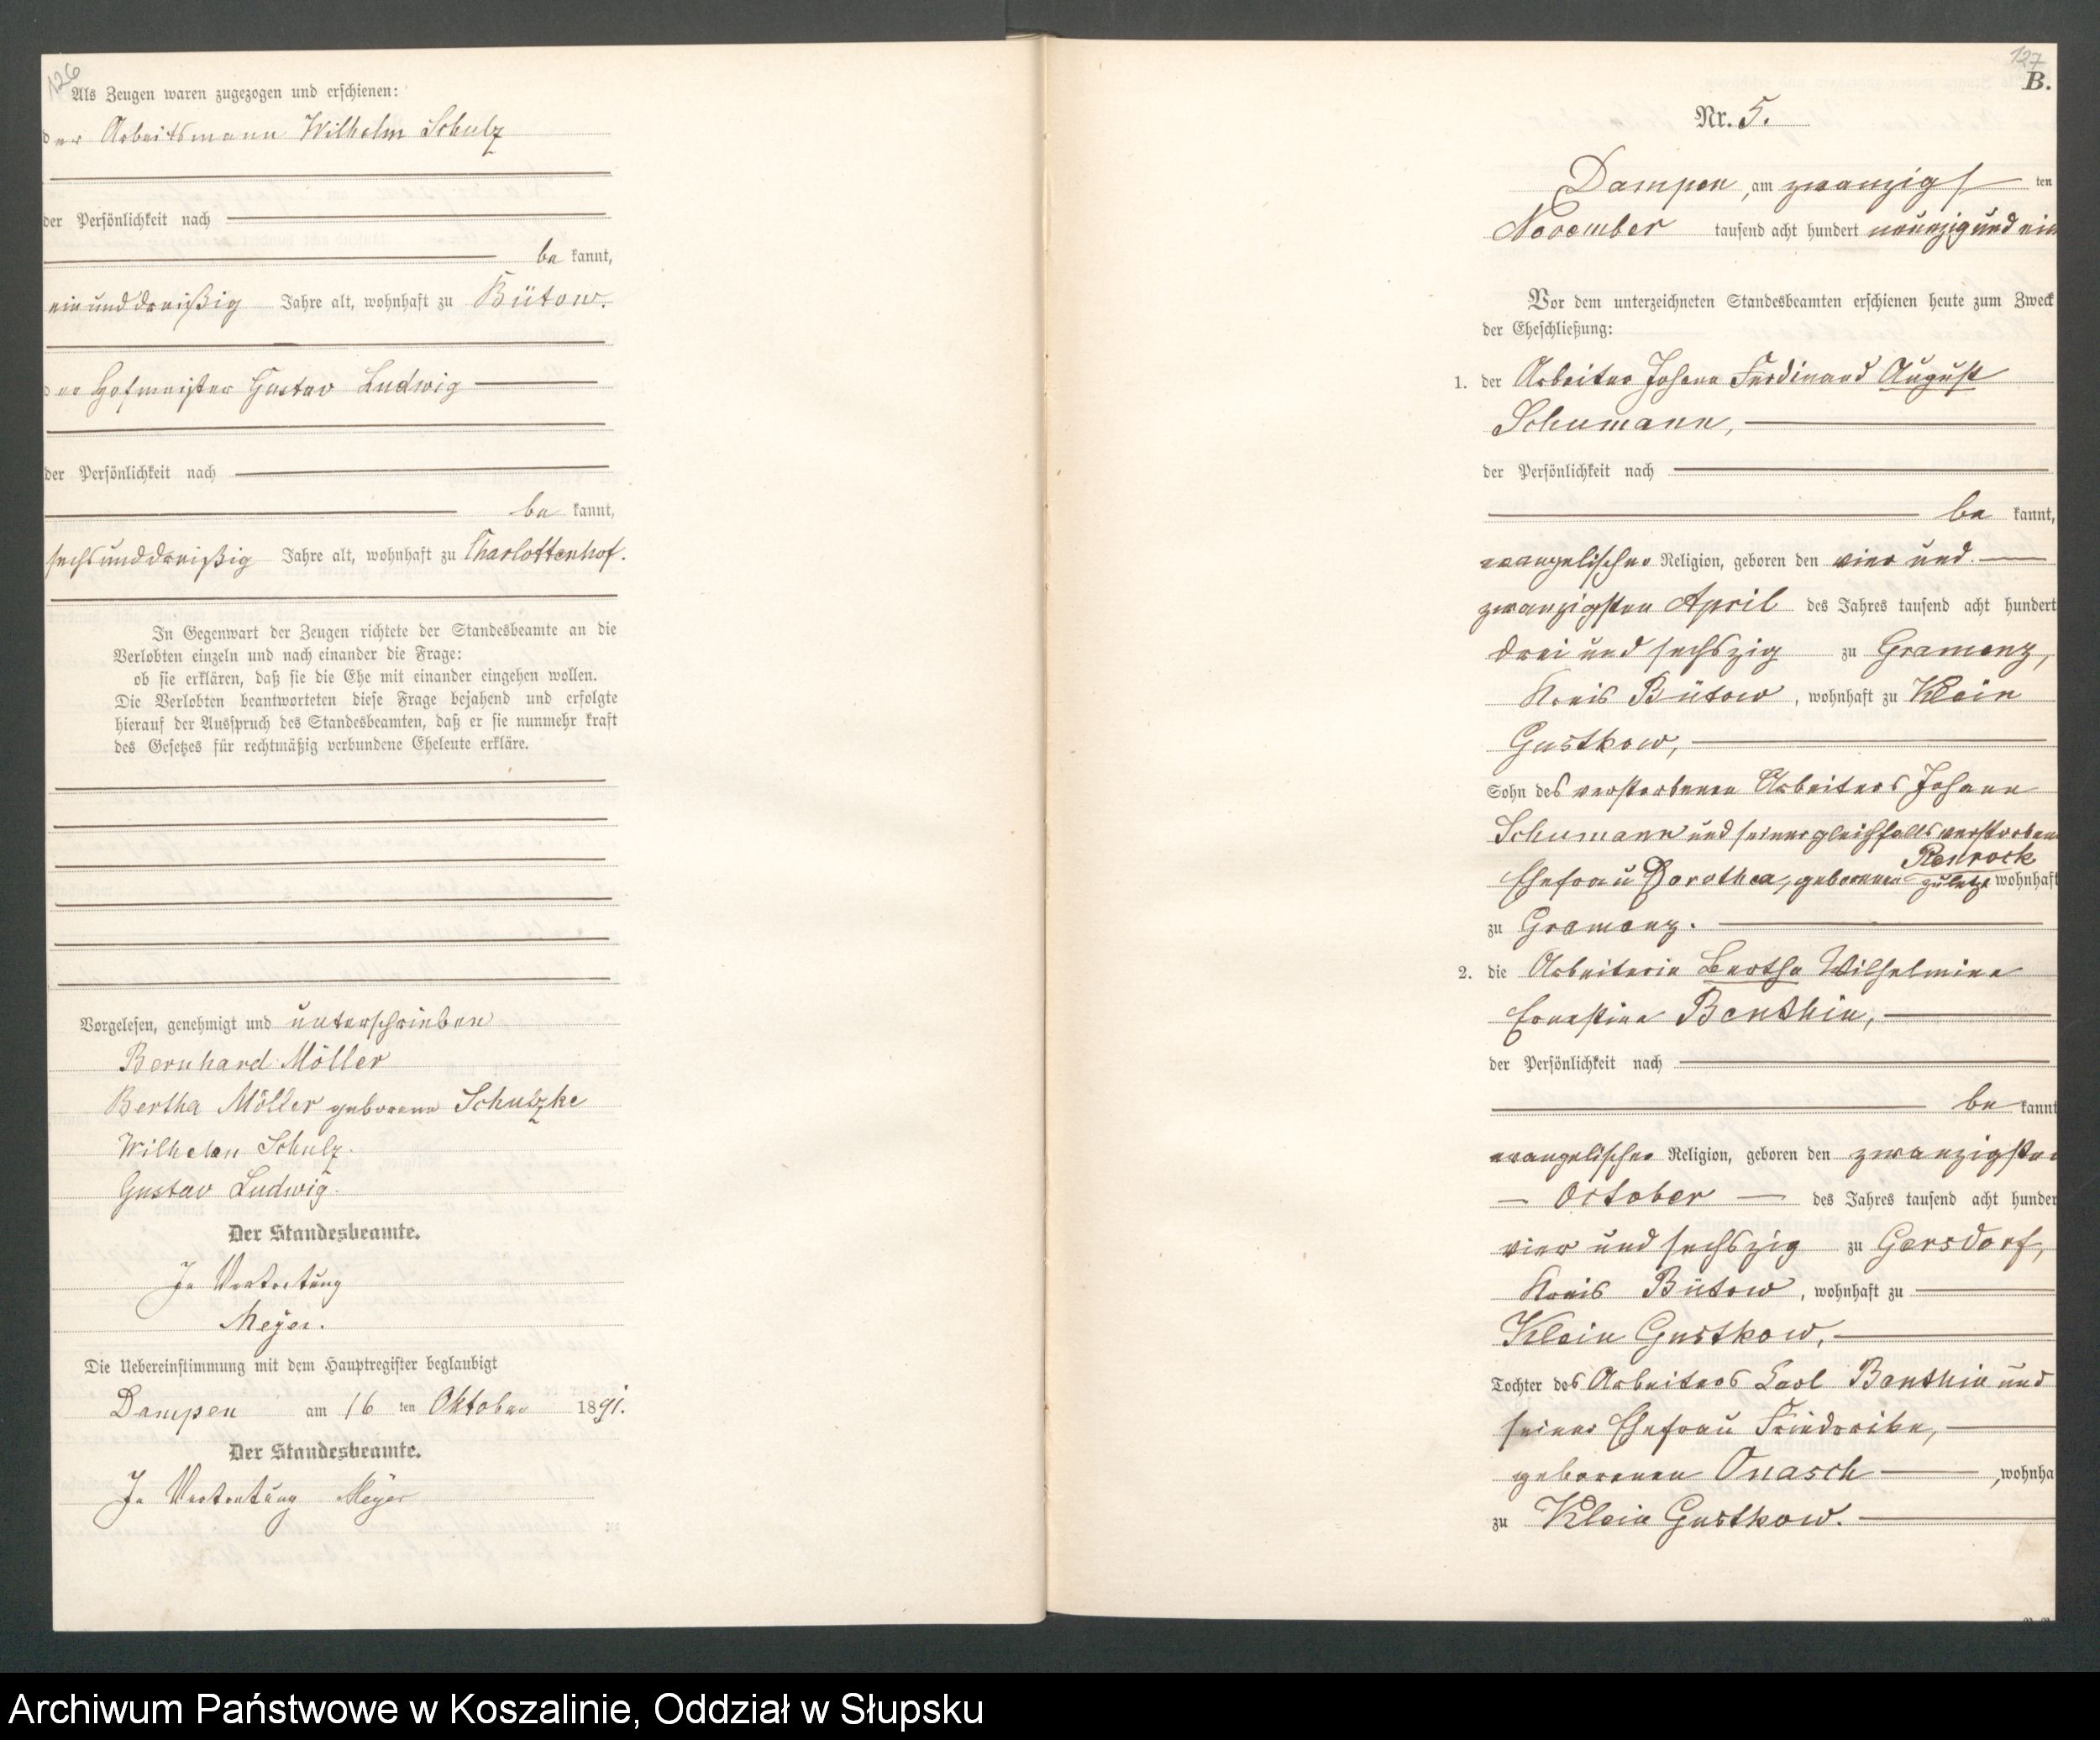 126
Als Zeugen waren zugezogen und erschienen:
der Arbeitsmann Wilhelm Schulz
der Persönlichkeit nach
be kannt,
einunddreißig Jahre alt, wohnhaft zu Bütow.
der Hofmeister Gustav Ludwig
der Persönlichkeit nach
be kannt,
sechsunddreißig Jahre alt, wohnhaft zu Charlottenhof.
In Gegenwart der Zeugen richtete der Standesbeamte an die
Verlobten einzeln und nach einander die Frage:
ob sie erklären, daß sie die Ehe mit einander eingehen wollen.
Die Verlobten beantworteten diese Frage bejahend und erfolgte
hierauf der Ausspruch des Standesbeamten, daß er sie nunmehr kraft
des Gesetzes für rechtmäßig verbundene Eheleute erkläre.
Vorgelesen, genehmigt und unterschrieben
Bernhard Möller
Bertha Möller geborene Schulzke
Wilhelm Schulz.
Gustav Ludwig.
Der Standesbeamte.
In Vertretung
Meyer.
Die Uebereinstimmung mit dem Hauptregister beglaubigt
Dampen am 16 ten Oktober 1891.
Der Standesbeamte.
In Vertretung Meyer
127
B.
Nr. 5.
Dampen, am zwanzigs ten
November tausend acht hundert neunzig und ein
Vor dem unterzeichneten Standesbeamten erschienen heute zum Zweck
der Eheschließung:
1. der Arbeiter Johann Ferdinand August
Schumann,
der Persönlichkeit nach
be kannt,
evangelischer Religion, geboren den vier und
zwanzigsten April des Jahres tausend acht hundert
drei und sechszig zu Gramenz,
Kreis Bütow, wohnhaft zu Klein
Gustkow,
Sohn des verstorbenen Arbeiters Johann
Schumann und seiner gleichfalls verstorbenen
Renrock
Ehefrau Dorothea, geborenen zuletzt wohnhaft
zu Gramenz.
2. die Arbeiterin Bertha Wilhelmine
Ernestine Benthin,
der Persönlichkeit nach
be kannt
evangelischer Religion, geboren den zwanzigsten
October des Jahres tausend acht hunder
vier und sechszig zu Gersdorf,
Kreis Bütow, wohnhaft zu
Klein Gustkow,
Tochter des Arbeiters Carl Benthin und
seiner Ehefrau Friedricke,
geborenen Onasch, wohnha
zu Klein Gustkow.
Archiwum Państwowe w Koszalinie, Oddział w Słupsku